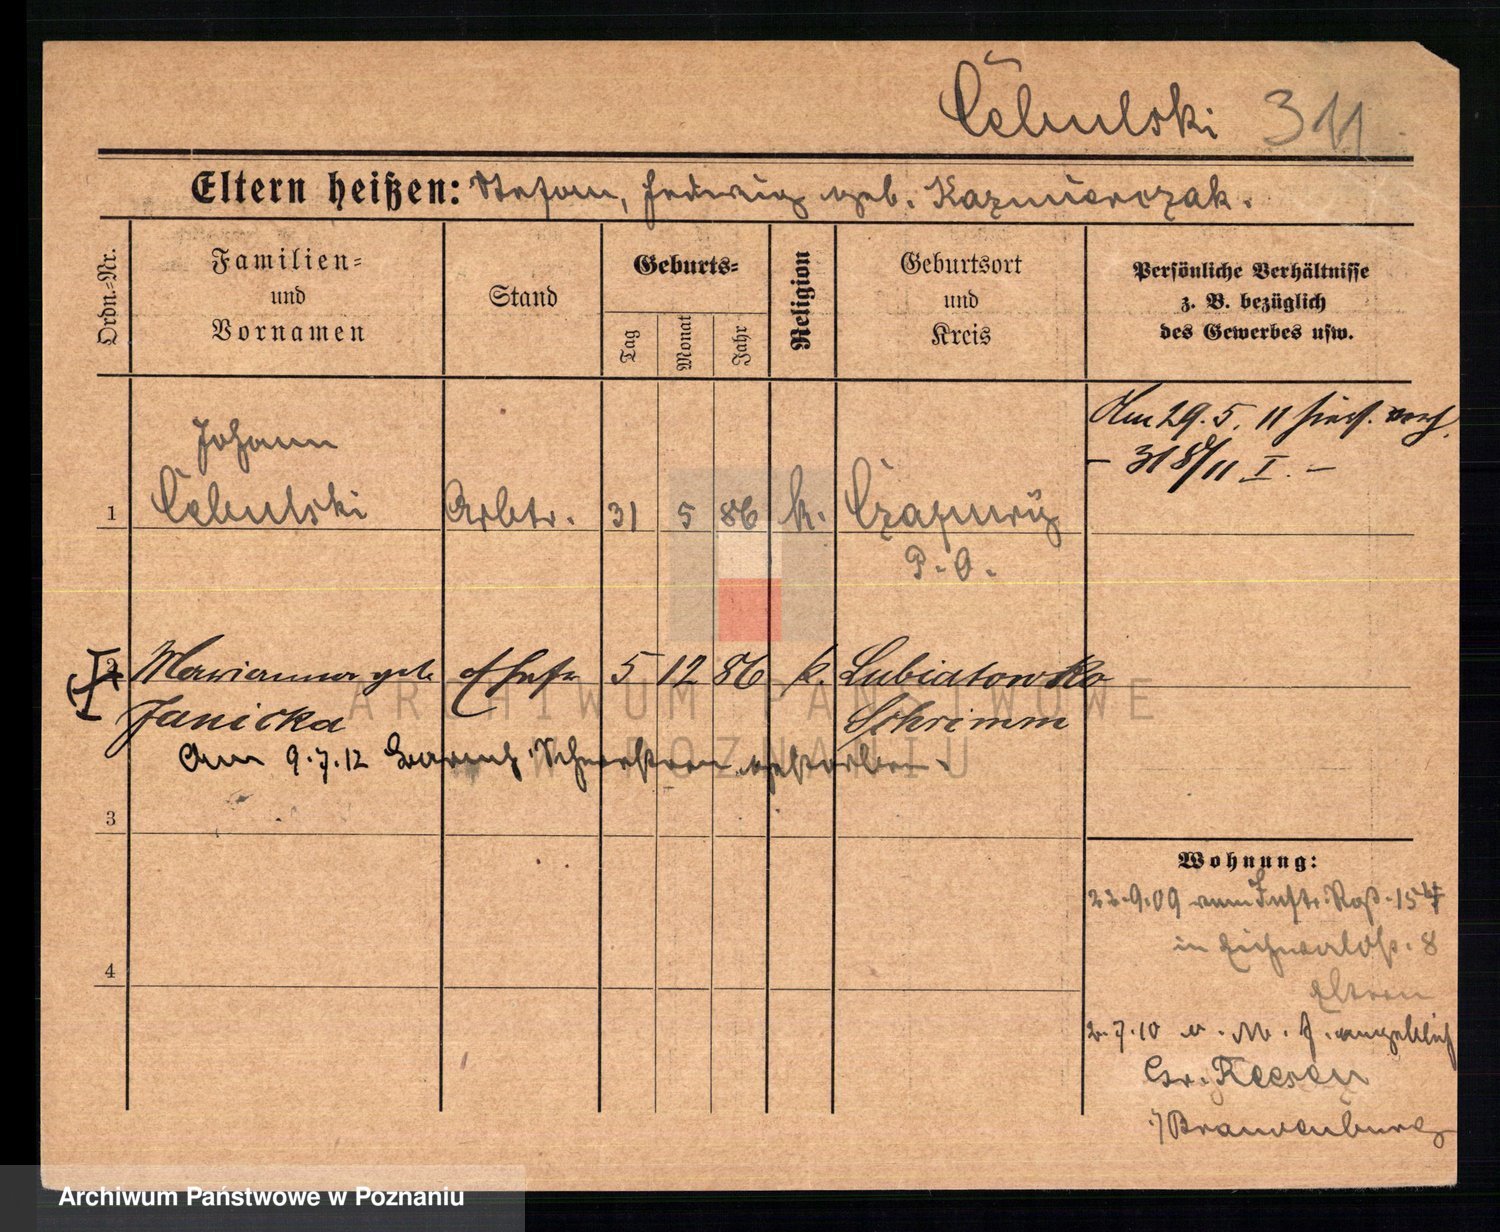 Cebulski 311
Eltern heißen: Stefan, Hedwig geb. Kazmierczak.
Ordn.-Nr.
Familien-
und
Vornamen
Stand
Geburts-
Tag
Monat
Jahr
Religion
Geburtsort
und
Kreis
Persönliche Verhältnisse
z. B. bezüglich
des Gewerbes usw.
Am 29. 5. 11
– 318/11 I. –
Johann
1 Cebulski Arbtr. 31 5 86 k. Czapury
P. O.
2 Marianna geb. Ehefr 5 12 86 k. Lubiatowko
Janicka Schrimm
Am 9.7.12 gestorben.
3
4
Wohnung:
22.9.09 vom Inftr. Rgt. 154
in Eichwaldstr. 8
Eltern
2.7.10 angeblich
Gr. Reesen
i/Brandenburg
Archiwum Państwowe
w Poznaniu
Archiwum Państwowe w Poznaniu